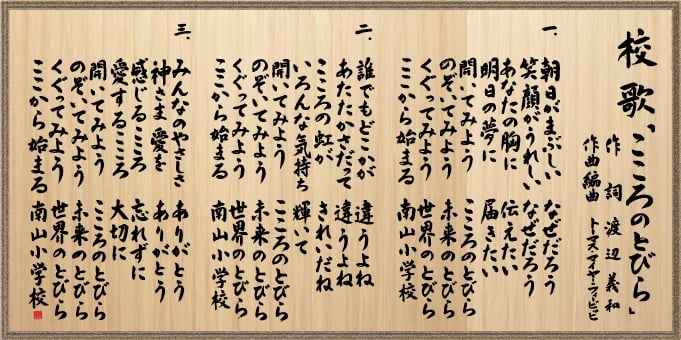 校歌「こころのとびら」
作詞 渡辺義和
作曲編曲
一、
朝日がまぶしい なぜだろう
笑顔がうれしい なぜだろう
あなたの胸に 伝えたい
明日の夢に 届きたい
開いてみよう こころのとびら
のぞいてみよう 未来のとびら
くぐってみよう 世界のとびら
ここから始まる 南山小学校
二、
誰でもどこかが 違うよね
あたたかさだって 違うよね
こころの虹が きれいだね
いろんな気持ち 輝いて
開いてみよう こころのとびら
のぞいてみよう 未来のとびら
くぐってみよう 世界のとびら
ここから始まる 南山小学校
三、
みんなのやさしさ ありがとう
神さま 愛を ありがとう
感じるこころ 忘れずに
愛するこころ 大切に
開いてみよう こころのとびら
のぞいてみよう 未来のとびら
くぐってみよう 世界のとびら
ここから始まる 南山小学校